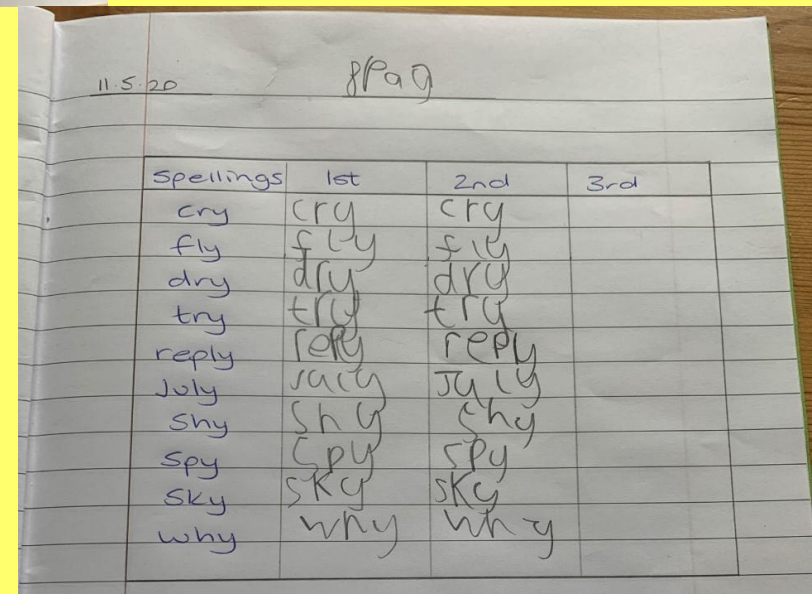 11.5.20 SPaG
Spellings 1st 2nd 3rd
cry cry cry
fly fly fly
dry dry dry
try try try
reply reply reply
July July July
Shy Shy shy
Spy Spy Spy
Sky SKy SKy
why why why